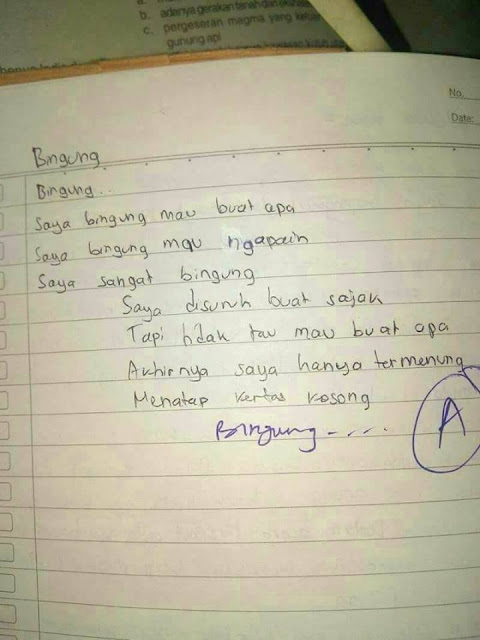 b. adanya gerakan tanah dan
c. pergeseran magma yang
gunung api
No.
Date:
Bingung
Bingung...
Saya bingung mau buat apa
Saya bingung mau ngapain
Saya sangat bingung
Saya disuruh buat sajak
Tapi tidak tau mau buat apa
Akhirnya saya hanya termenung
Menatap kertas kosong
Bingung - ....
A